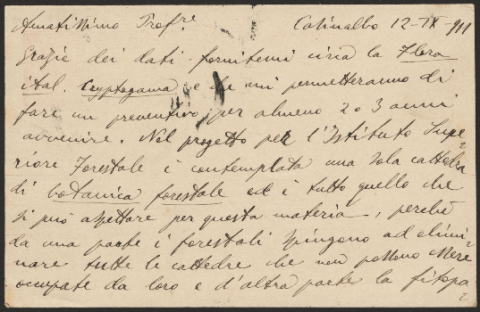 Amatissimo Prof.r Casinalbo 12-IX-911
Grazie dei dati fornitemi circa la Flora
ital. Cryptogama che mi permetteranno di
fare un preventivo per almeno 2 o 3 anni
avvenire. Nel progetto per l'Istituto Supe-
riore Forestale è contemplata una sola cattedra
di botanica forestale ed è tutto quello che
si può aspettare per questa materia, perchè
da una parte i forestali spingono ad elimi-
nare tutte le cattedre che non possono essere
occupate da loro e d'altra parte la fitopa-